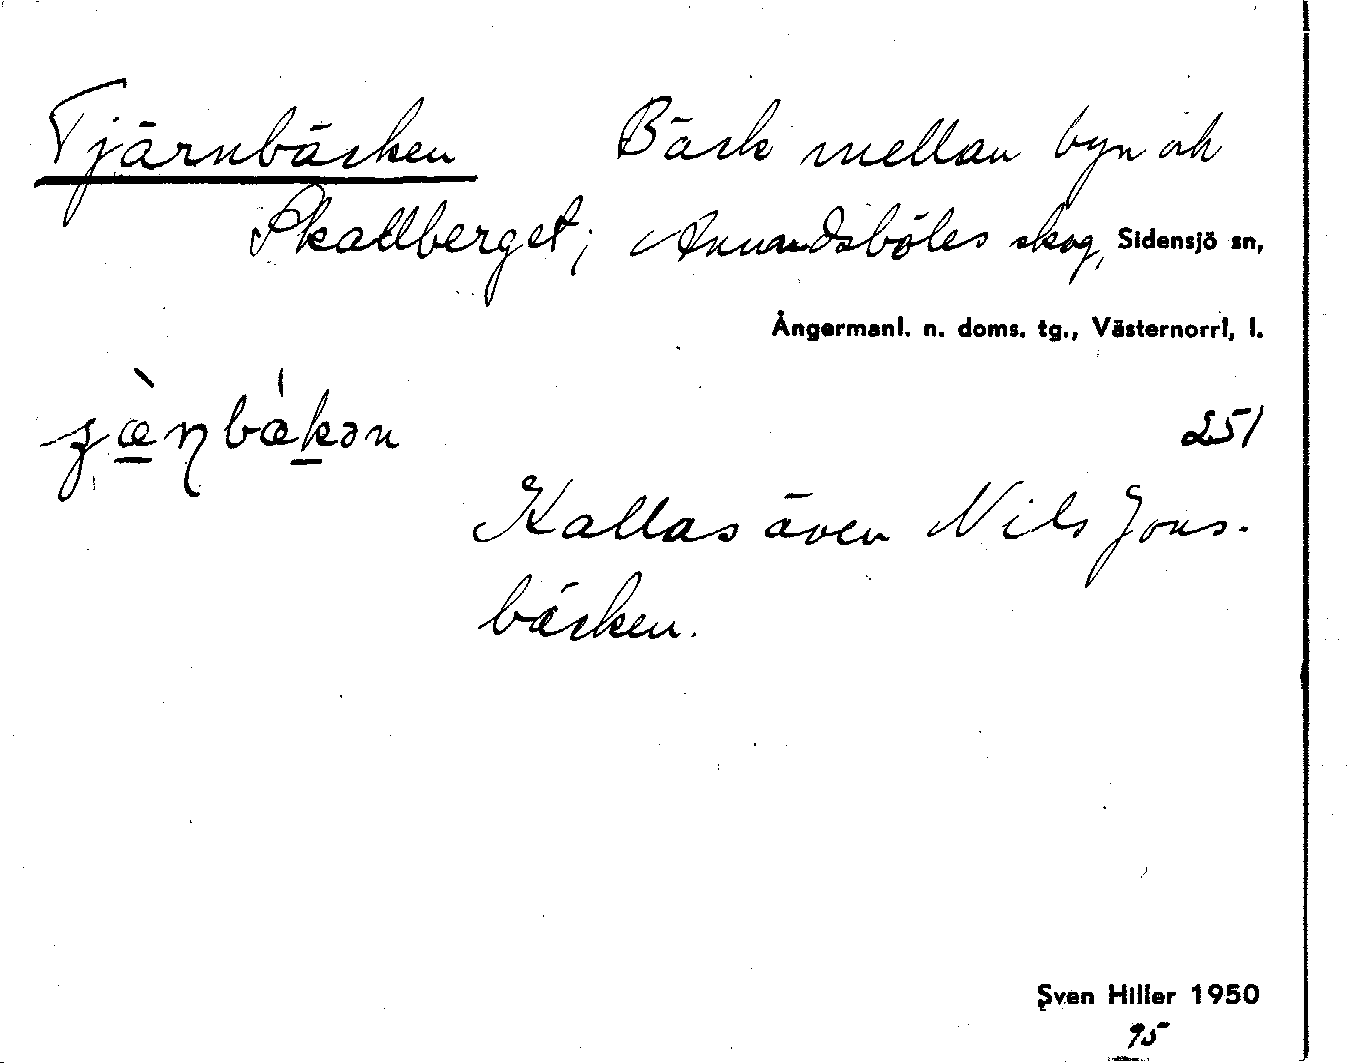 Tjärnbäcken Bäck mellan byn och
Skallberget; Anundsböles skog, Sidensjö sn,
Ångermanl. n. doms. tg., Västernorrl. l.
251
Kallas även Nils Jons-
bäcken.
Sven Hiller 1950
95